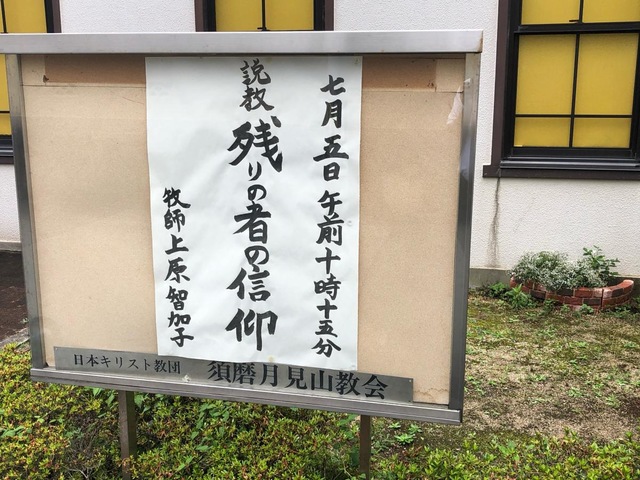 七月五日午前十時十五分
説教 残りの者の信仰
牧師上原智加子
日本キリスト教団 須磨月見山教会